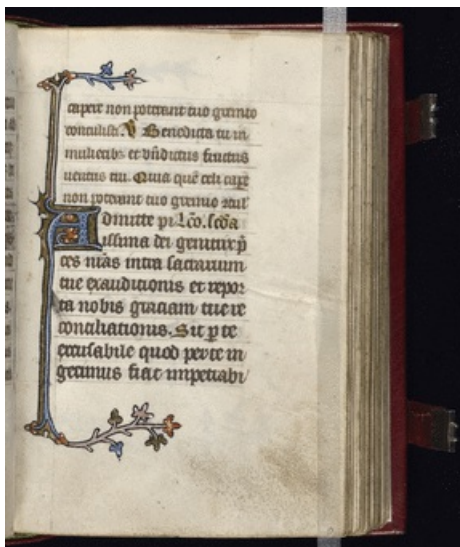 capere non poterant tuo gremio
contulisti. V Benedicta tu in
mulieribz et bn̄dictus fructus
uentris tui. Quia quē celi cape
non poterant tuo gremio 
Admitte pi lc̄o. scd̄a
issima dei genitrix p̄
ces nr̄as intra sacrarium
tue exauditionis et repor
ta nobis graciam tue re
conciliationis. Sit p te
excusabile quod per te in
gerimus fiat impetrabi